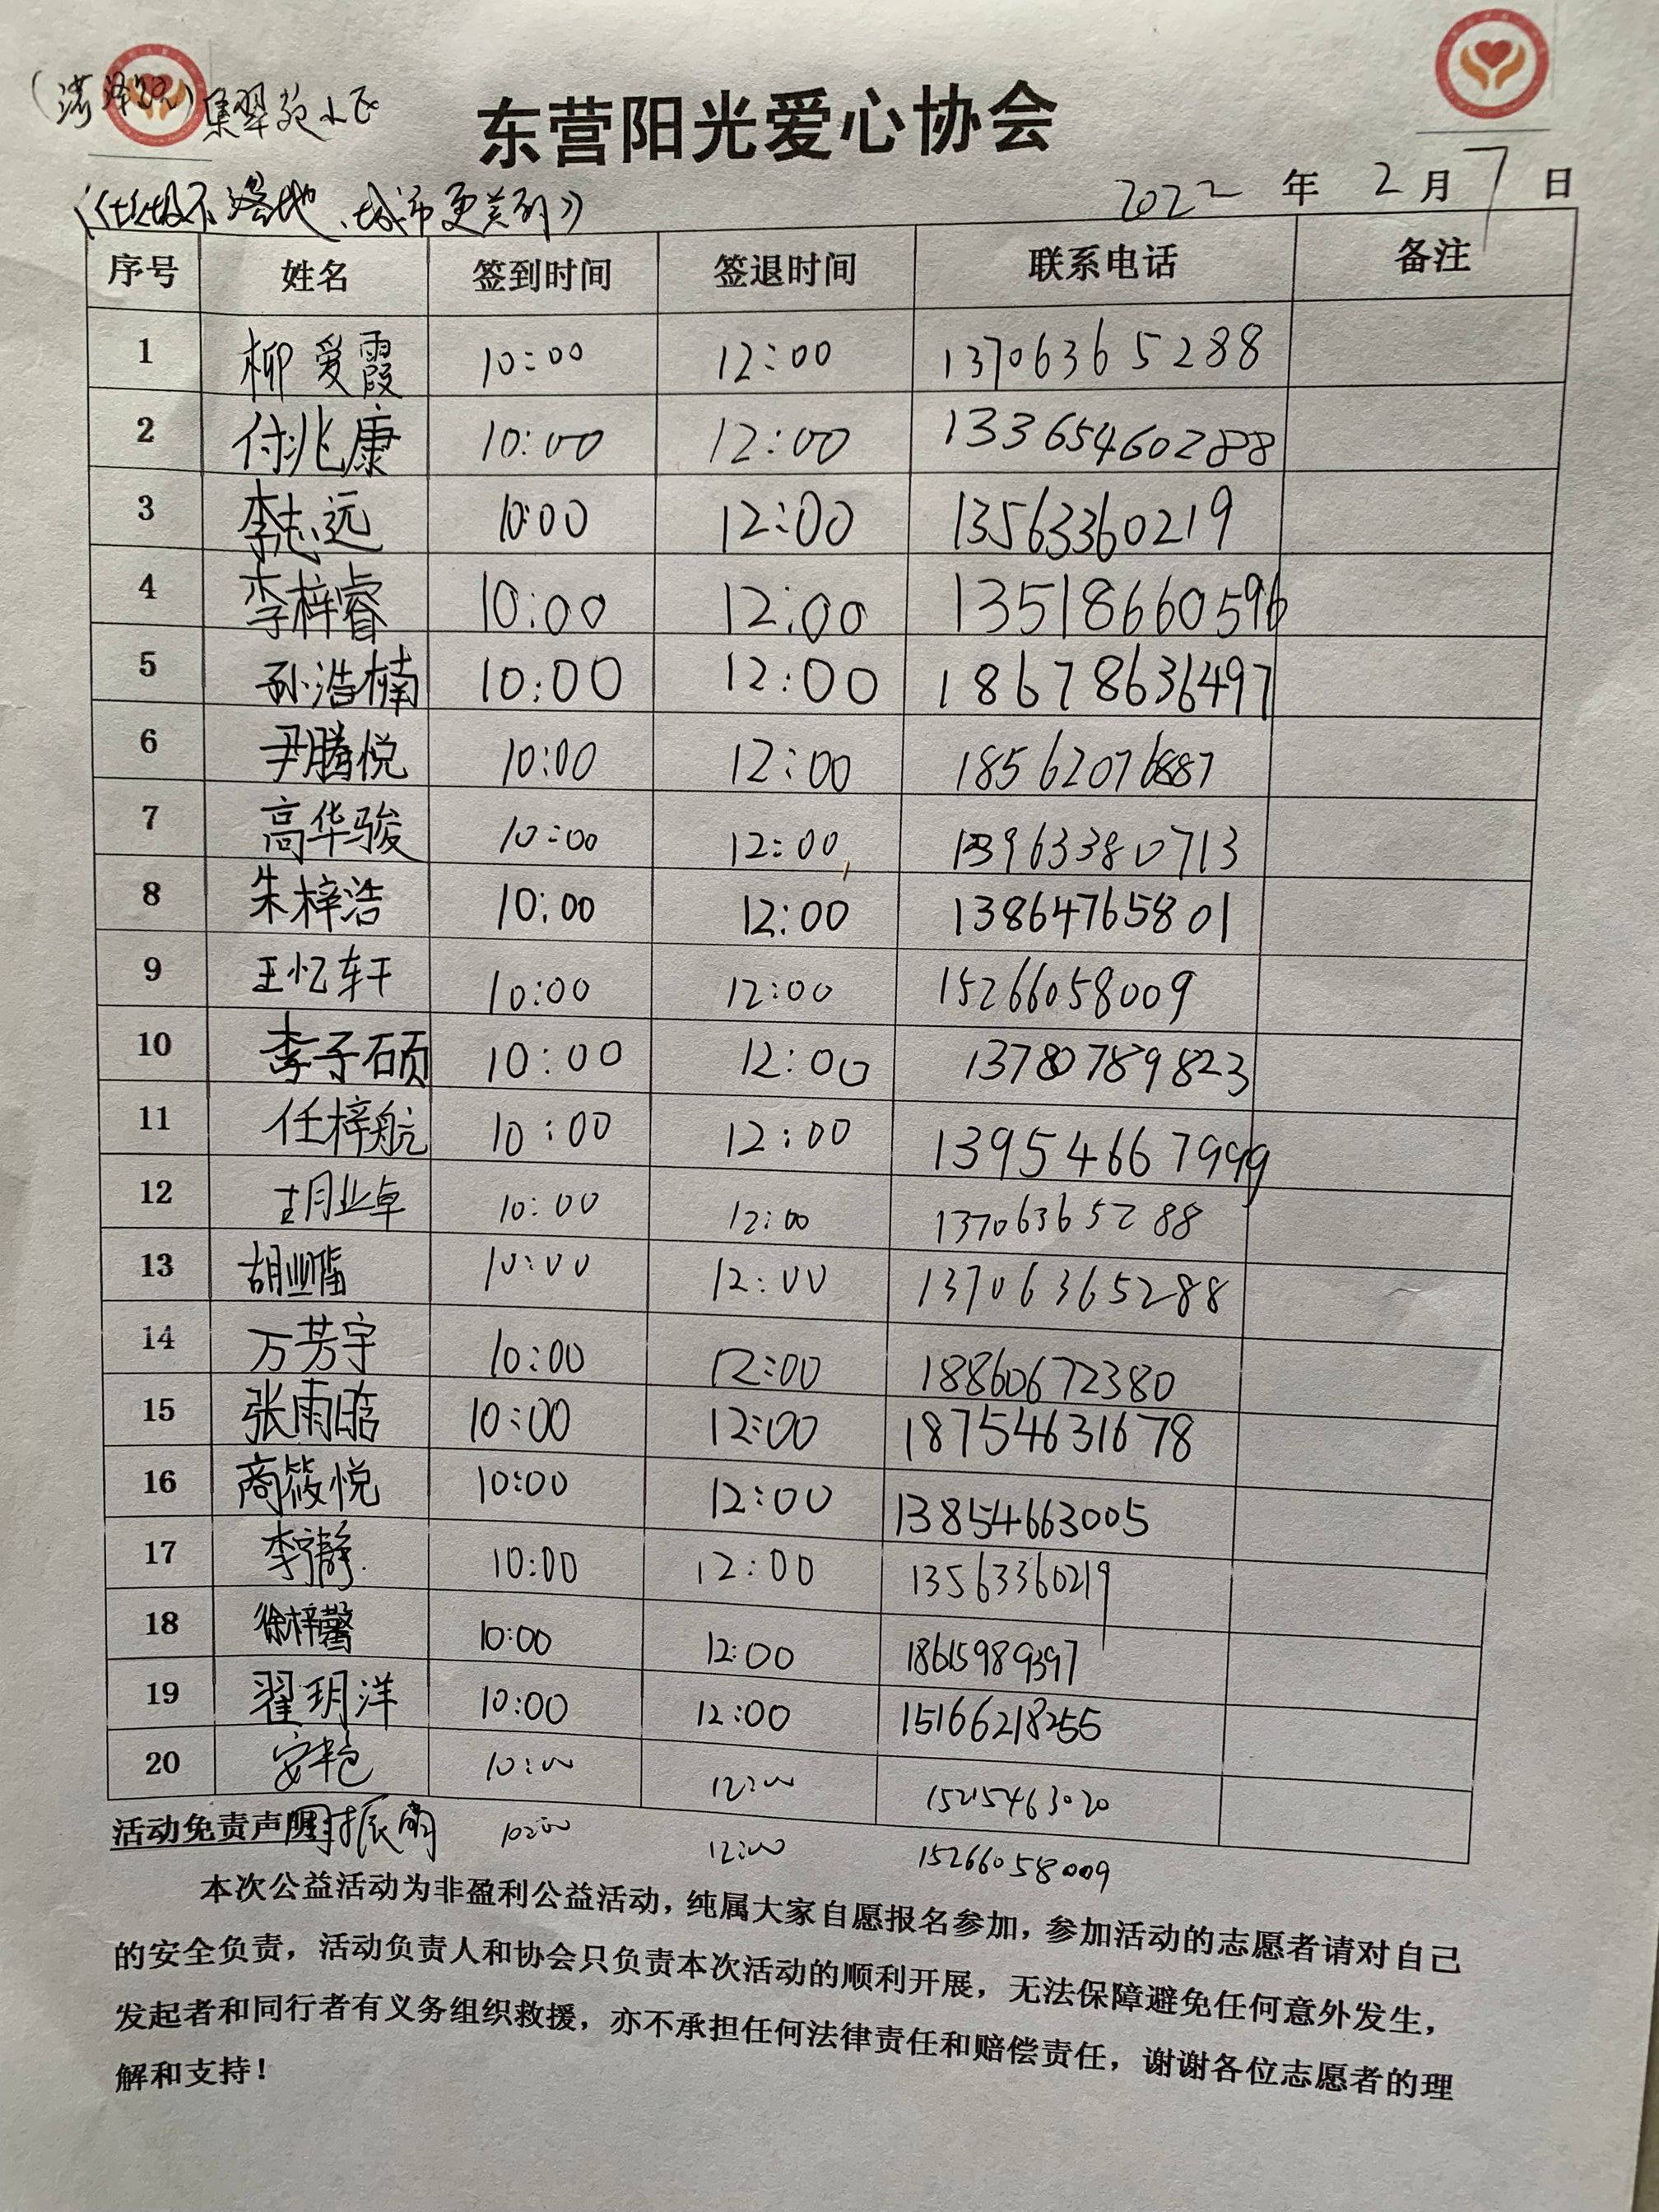 集翠苑小区
东营阳光爱心协会
《垃圾不落地、城市更美丽》
2022 年 2 月 7 日
序号 姓名 签到时间 签退时间 联系电话 备注
1 柳爱霞 10:00 12:00 13706365288
2 付兆康 10:00 12:00 133654460288
3 李志远 10:00 12:00 13563360219
4 李梓睿 10:00 12:00 13518660596
5 孙浩楠 10:00 12:00 18678636497
6 尹腾悦 10:00 12:00 18562076887
7 高华骏 10:00 12:00 13963380713
8 朱梓浩 10:00 12:00 13864765801
9 王忆轩 10:00 12:00 15266058009
10 李子硕 10:00 12:00 13780789823
11 任梓航 10:00 12:00 13954667999
12 10:00 12:00 13706365288
13 10:00 12:00 13706365288
14 万芳宇 10:00 12:00 18860672380
15 张雨晗 10:00 12:00 18754631678
16 商筱悦 10:00 12:00 13854663005
17 10:00 12:00 13563360219
18 徐梓馨 10:00 12:00 18615989397
19 翟玥洋 10:00 12:00 15166218255
20 10:00 12:00 15215463020
活动免责声明 10:00 12:00 15266058009
本次公益活动为非盈利公益活动，纯属大家自愿报名参加，参加活动的志愿者请对自己
的安全负责，活动负责人和协会只负责本次活动的顺利开展，无法保障避免任何意外发生，
发起者和同行者有义务组织救援，亦不承担任何法律责任和赔偿责任，谢谢各位志愿者的理
解和支持！